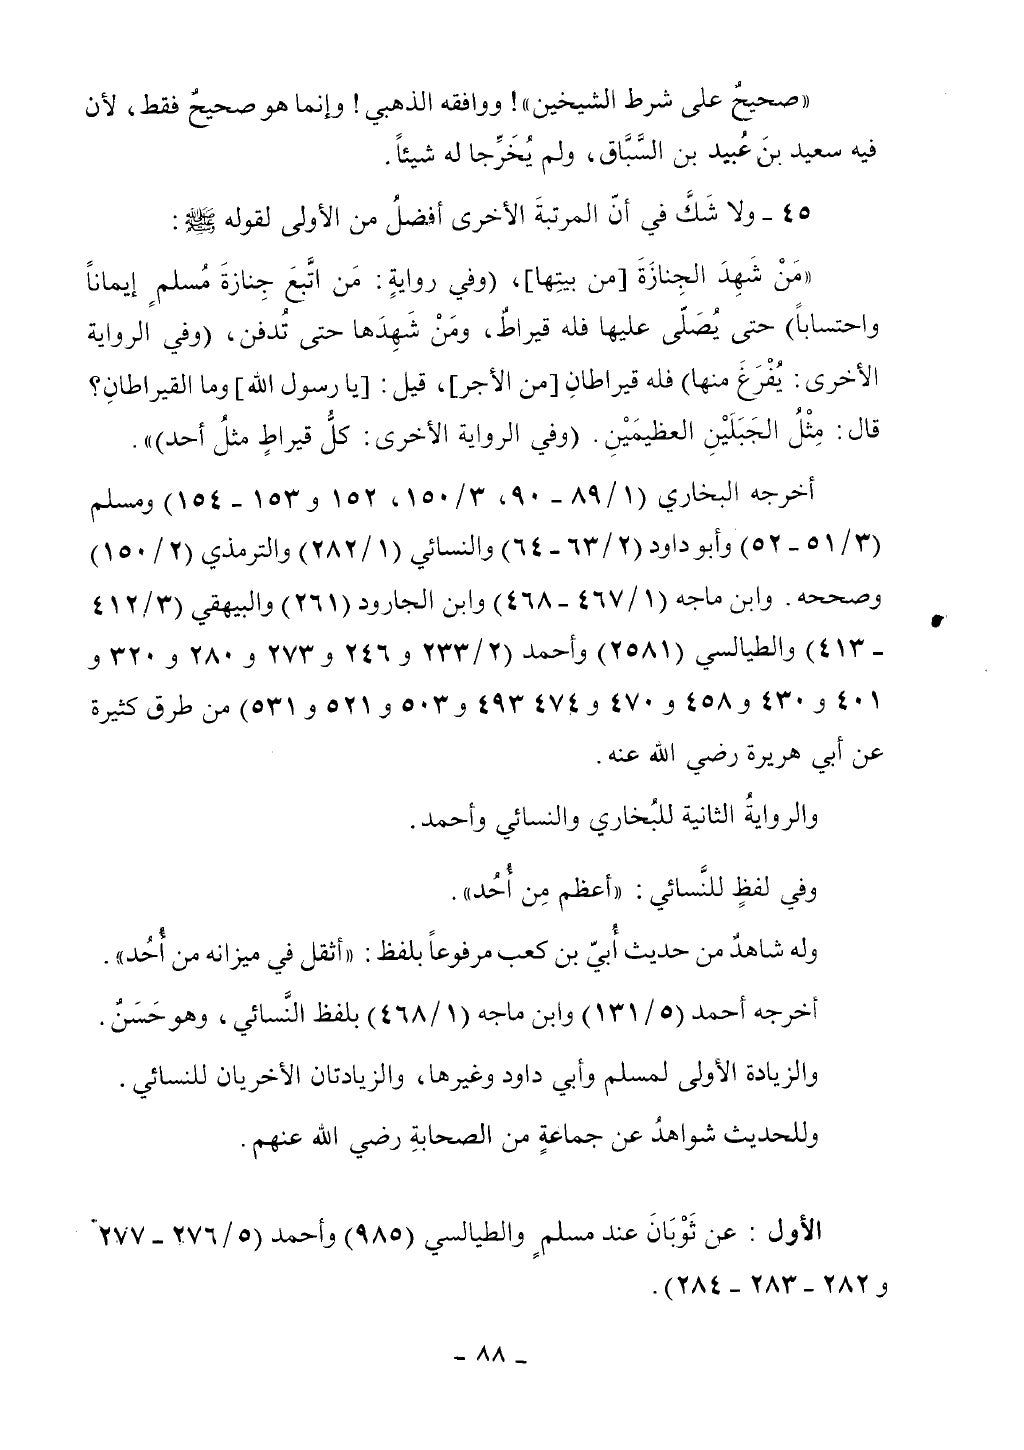 «صحيحٌ على شرط الشيخين»! ووافقه الذهبي! وإنما هو صحيحٌ فقط، لأن
فيه سعيد بنَ عُبيد بن السَّبَّاق، ولم يُخَرِّجا له شيئاً.
٤٥ ـ ولا شَكَّ في أنّ المرتبةَ الأخرى أفضلُ من الأولى لقوله ﷺ:
«مَنْ شَهِدَ الجِنازَةَ [من بيتِها]، (وفي روايةٍ: مَن اتَّبعَ جِنازةَ مُسلمٍ إيماناً
واحتساباً) حتى يُصَلّى عليها فله قيراطٌ، ومَنْ شَهِدَها حتى تُدفن، (وفي الرواية
الأخرى: يُفْرَغَ منها) فله قيراطانِ [من الأجر]، قيل: [يا رسول الله] وما القيراطانِ؟
قال: مِثْلُ الجَبَلَيْنِ العظيمَيْنِ. (وفي الرواية الأخرى: كلُّ قيراطٍ مثلُ أحد)».
أخرجه البخاري (١/٨٩ ـ ٩٠، ٣/١٥٠، ١٥٢ و ١٥٣ ـ ١٥٤) ومسلم
(٣/٥١ ـ ٥٢) وأبو داود (٢/٦٣ ـ ٦٤) والنسائي (١/٢٨٢) والترمذي (٢/١٥٠)
وصححه. وابن ماجه (١/٤٦٧ ـ ٤٦٨) وابن الجارود (٢٦١) والبيهقي (٣/٤١٢
ـ ٤١٣) والطيالسي (٢٥٨١) وأحمد (٢/٢٣٣ و ٢٤٦ و ٢٧٣ و ٢٨٠ و ٣٢٠ و
٤٠١ و ٤٣٠ و ٤٥٨ و ٤٧٠ و ٤٧٤ ٤٩٣ و ٥٠٣ و ٥٢١ و ٥٣١) من طرق كثيرة
عن أبي هريرة رضي الله عنه.
والروايةُ الثانية للبُخاري والنسائي وأحمد.
وفي لفظٍ للنَّسائي: «أعظم مِن أُحُد».
وله شاهدٌ من حديث أُبيّ بن كعب مرفوعاً بلفظ: «أثقل في ميزانه من أُحُد».
أخرجه أحمد (٥/١٣١) وابن ماجه (١/٤٦٨) بلفظ النَّسائي، وهو حَسَنٌ.
والزيادة الأولى لمسلم وأبي داود وغيرها، والزيادتان الأخريان للنسائي.
وللحديث شواهدُ عن جماعةٍ من الصحابةِ رضي الله عنهم.
الأول: عن ثَوْبَانَ عند مسلمٍ والطيالسي (٩٨٥) وأحمد (٥/٢٧٦ ـ ٢٧٧
و ٢٨٢ ـ ٢٨٣ ـ ٢٨٤).
ـ ٨٨ ـ